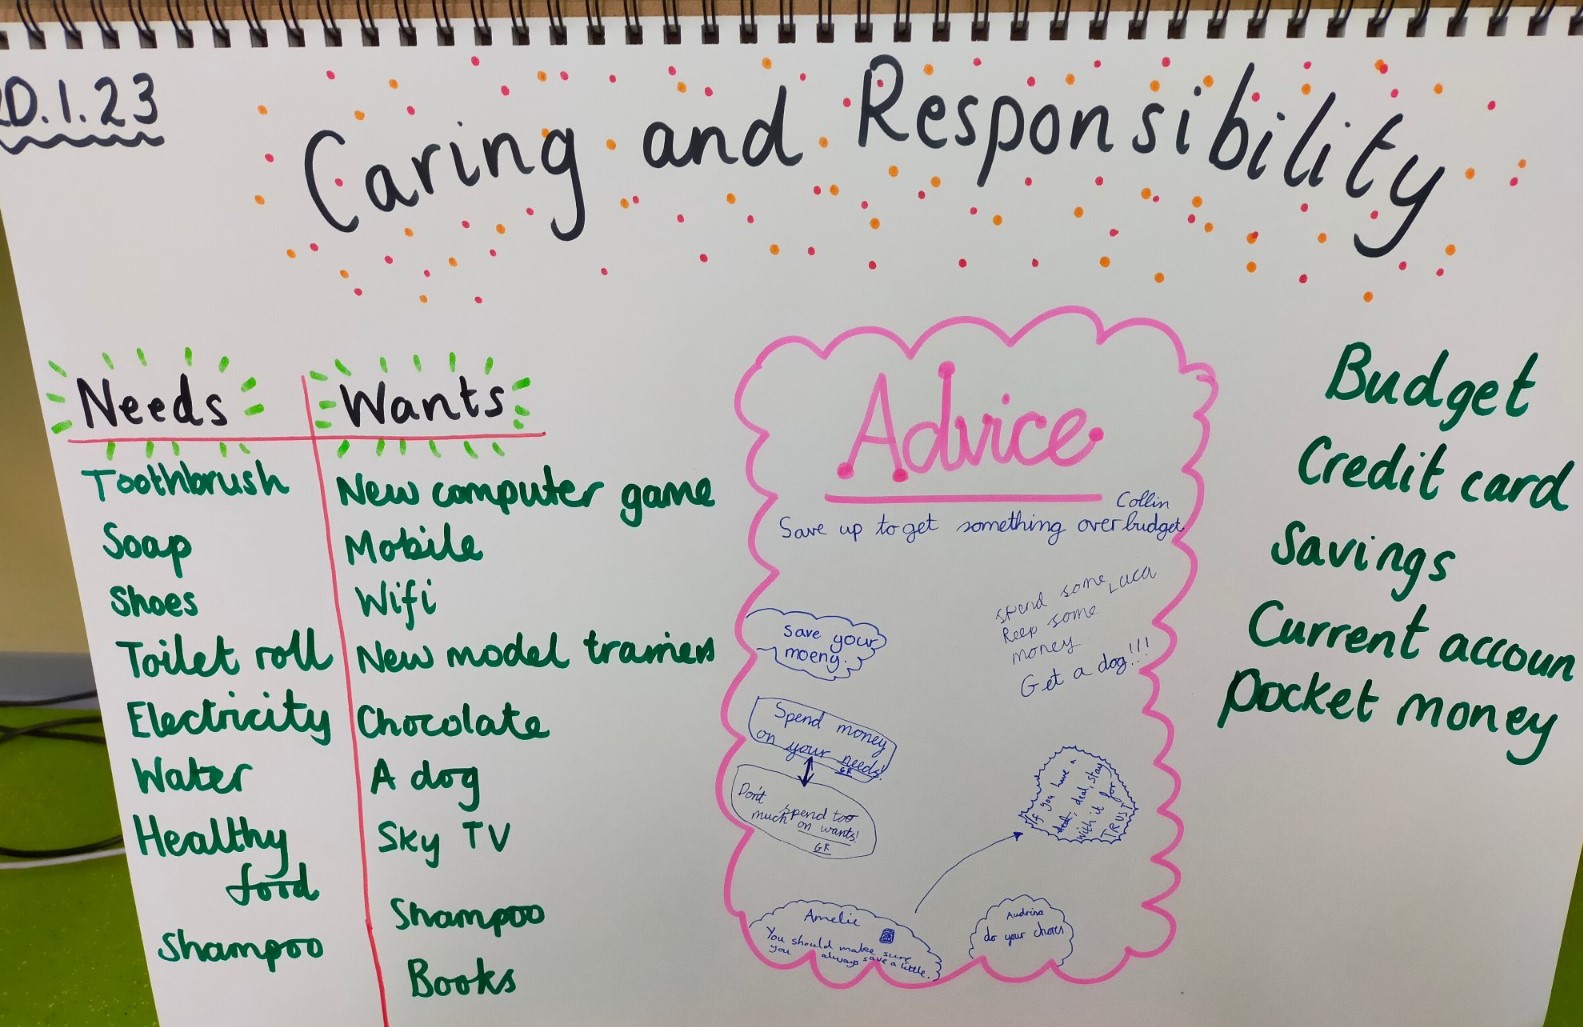 D.1.23
Caring and Responsibility
Needs
Toothbrush
Soap
Shoes
Toilet roll
Electricity
Water
Healthy
food
Shampoo
Wants
New computer game
Mobile
Wifi
New model trainers
Chocolate
A dog
Sky TV
Shampoo
Books
Advice
Collin
Save up to get something over budget
spend some Luca
keep some
money
Get a dog!!!
save your
moeny.
Spend money
on your needs!
GR
Don't
spend too
much on wants!
GR
If you have a
deal, stay
with it for
TRUST
Amelie
You should make sure
you always save a little.
Audrina
do your chores
Budget
Credit card
Savings
Current accoun
Pocket money